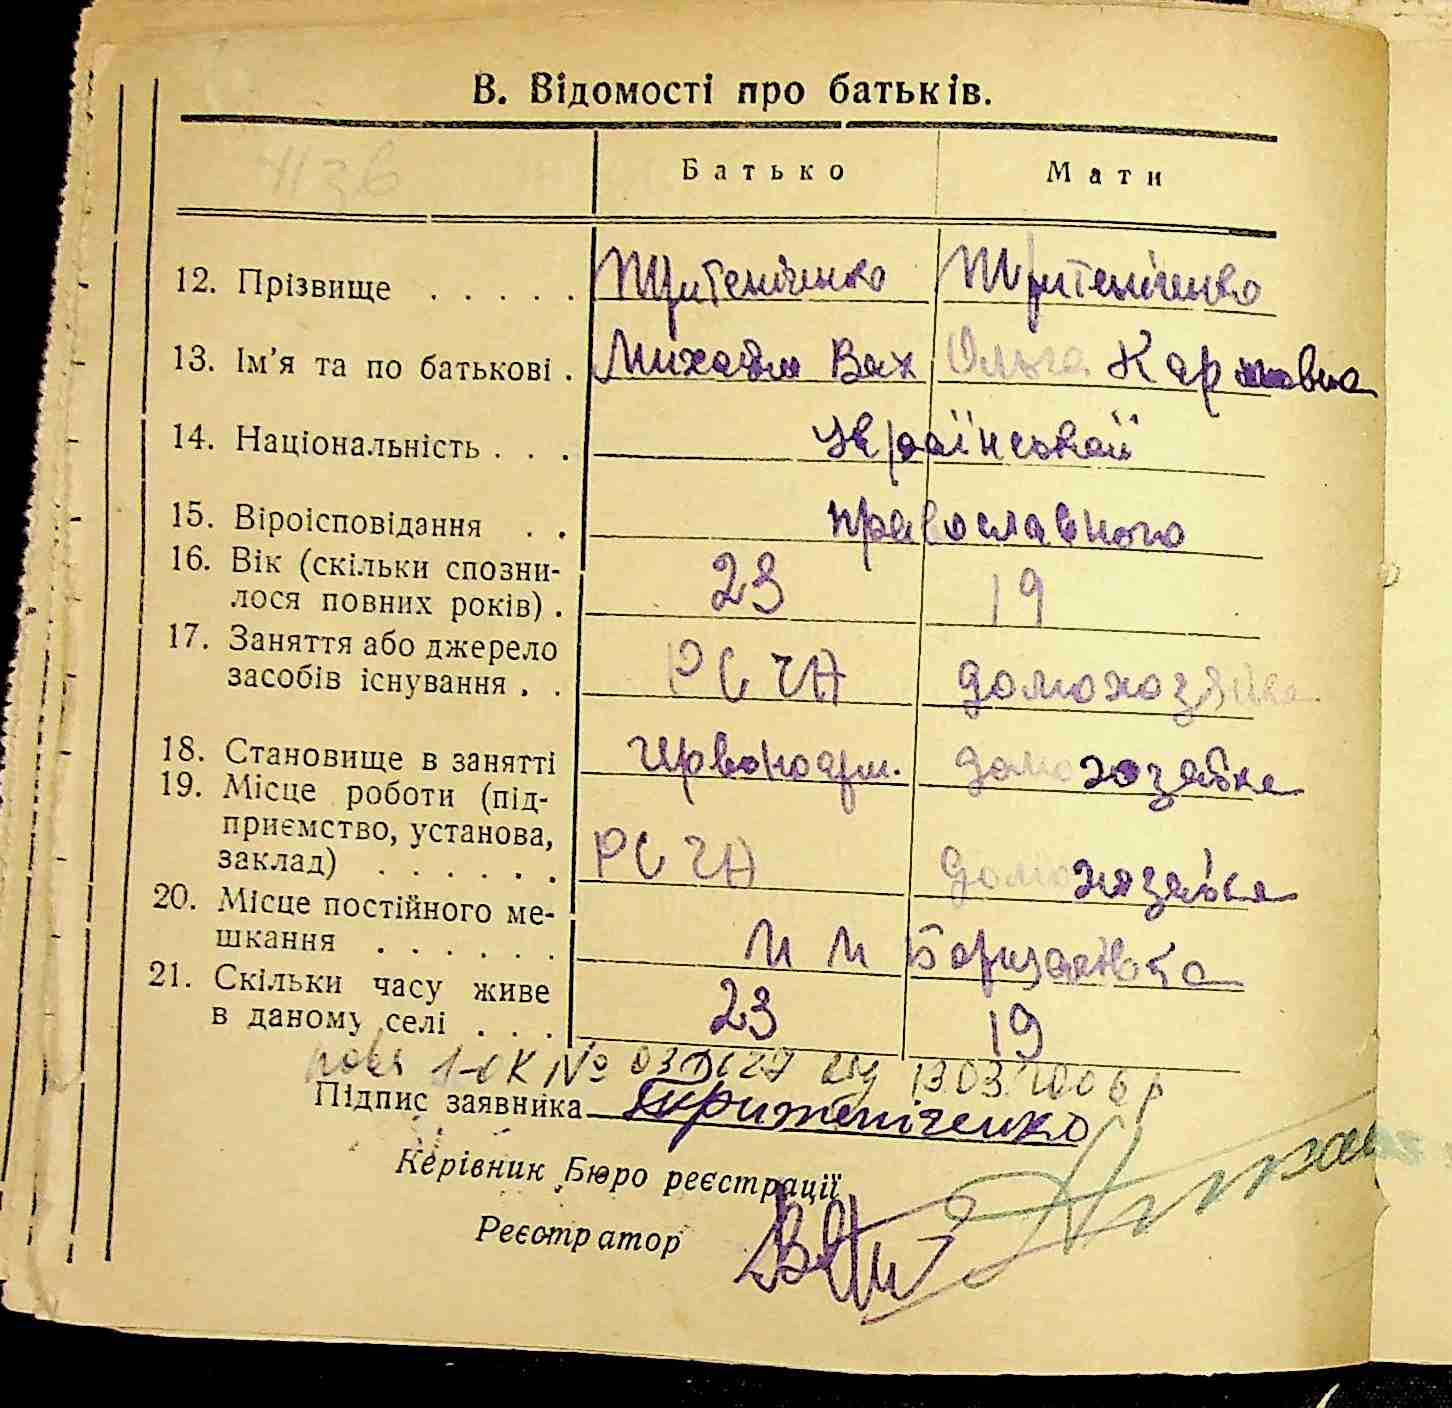 В. Відомості про батьків.
Батько Мати
12. Прізвище . . . . . Тритениченко Тритениченко
13. Ім'я та по батькові . Михайло Вах Ольга Карповна
14. Національність . . . українській
15. Віроісповідання . . православного
16. Вік (скільки спозни-
лося повних років) . 23 19
17. Заняття або джерело
засобів існування . . РСЧА домохозяйка
18. Становище в занятті червоноарм. домохозяйка
19. Місце роботи (під-
приємство, установа,
заклад) . . . . . . РСЧА домохозяйка
20. Місце постійного ме-
шкання . . . . . . м м
21. Скільки часу живе
в даному селі . . . 23 19
1-ОК № 13.03.2006 р
Підпис заявника Тритеніченко
Керівник Бюро реєстрації
Реєстратор